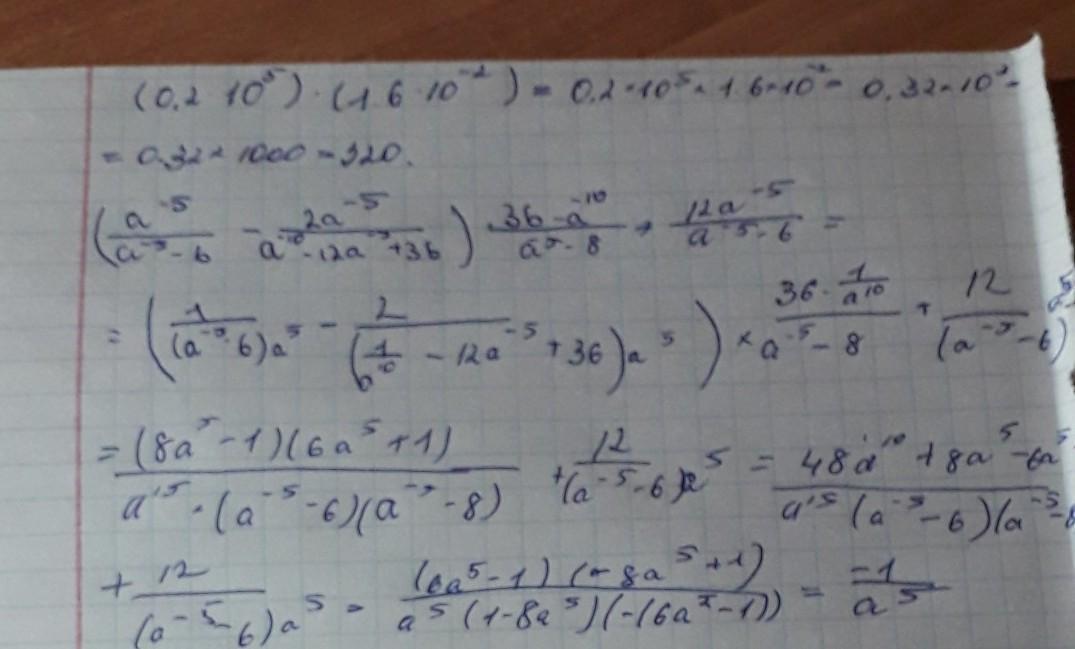 (0.2 · 10⁵) · (1.6 · 10⁻²) = 0.2 · 10⁵ · 1.6 · 10⁻² = 0.32 × 10³ =
= 0.32 × 1000 = 320.
(a⁻⁵/(a⁻⁵ - 6) - 2a⁻⁵/(a⁻¹⁰ - 12a⁻⁵ + 36)) · (36 - a⁻¹⁰)/(a⁻⁵ - 8) + 12a⁻⁵/(a⁻⁵ - 6) =
= (1/((a⁻⁵ - 6)a⁵) - 2/((1/a¹⁰ - 12a⁻⁵ + 36)a⁵)) × (36 - 1/a¹⁰)/(a⁻⁵ - 8) + 12/((a⁻⁵ - 6)a⁵
= (8a⁵ - 1)(6a⁵ + 1)/(a¹⁵ · (a⁻⁵ - 6)(a⁻⁵ - 8)) + 12/((a⁻⁵ - 6)a⁵) = (48a¹⁰ + 8a⁵ - 6a⁵)/(a¹⁵(a⁻⁵ - 6)(a⁻⁵ - 8
+ 12/((a⁻⁵ - 6)a⁵) = (6a⁵ - 1)(-8a⁵ + 1)/(a⁵(1 - 8a⁵)(-(6a⁵ - 1))) = -1/a⁵